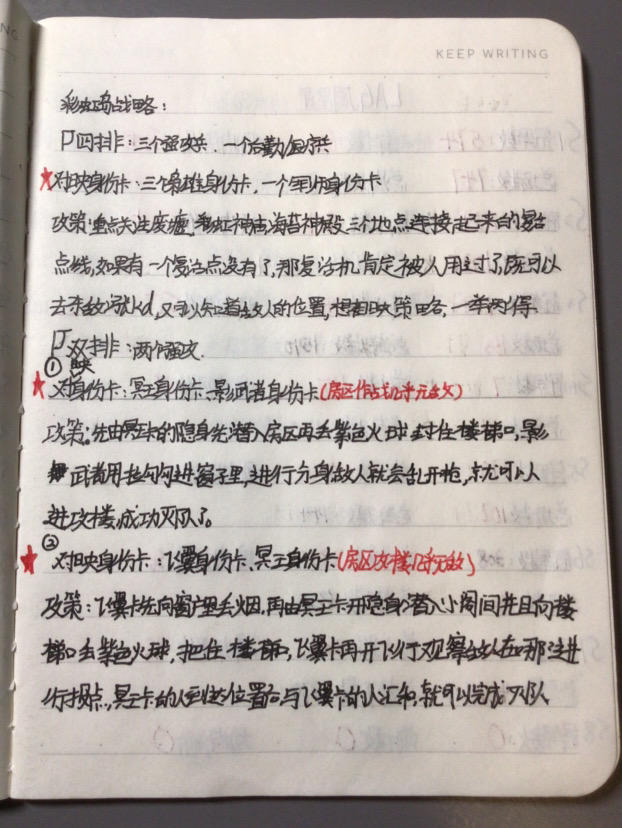 KEEP WRITING
彩虹岛战略:
四排:三个强攻兵.一个后勤/医疗兵
★对映身份卡:三个枭雄身份卡,一个军师身份卡
政策:重点关注废墟,彩虹神庙,海苔神殿三个地点连接起来的复活
点线,如果有一个复活点没有了,那复活机肯定被人用过了,既可以
去杀敌涨kd,又可以知道敌人的位置,想相映策略,一举两得.
双排:两个强攻.
①映
★对身份卡:冥王身份卡、影武者身份卡(房区作战几乎无敌)
政策:先由冥王卡的隐身先潜入房区再丢紫色火球封住楼梯口,影
武者用拉勾勾进窗子里,进行分身敌人就会乱开枪,就可以
进攻楼,成功灭队了。
②
★对映身份卡:飞翼身份卡、冥王身份卡(房区攻楼几乎无敌)
政策:飞翼卡先向窗户里丢烟,再由冥王卡开隐身潜入小阁间并且向楼
梯口丢紫色火球,把住楼梯口,飞翼卡再开飞行观察敌人在哪边进
行报点,冥王卡的人到达位置后与飞翼卡的人汇和,就可以完成灭队